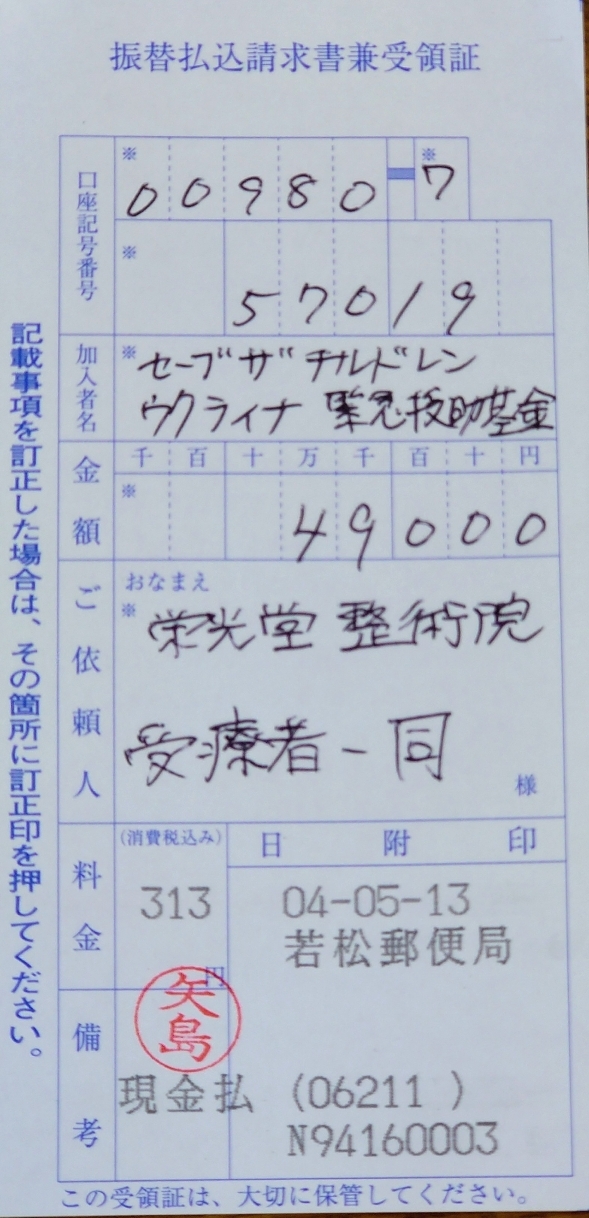 振替払込請求書兼受領証
口座記号番号
※ ※
00980-7
※
57019
加入者名
※ セーブ ザ チルドレン
ウクライナ 緊急援助基金
金額
千 百 十 万 千 百 十 円
※
49000
ご依頼人
おなまえ
※ 栄光堂 整術院
受療者一同
様
料金
(消費税込み)
313
円
日 附 印
04-05-13
若松郵便局
備考
矢島
現金払 (06211 )
N94160003
記載事項を訂正した場合は、その箇所に訂正印を押してください。
この受領証は、大切に保管してください。